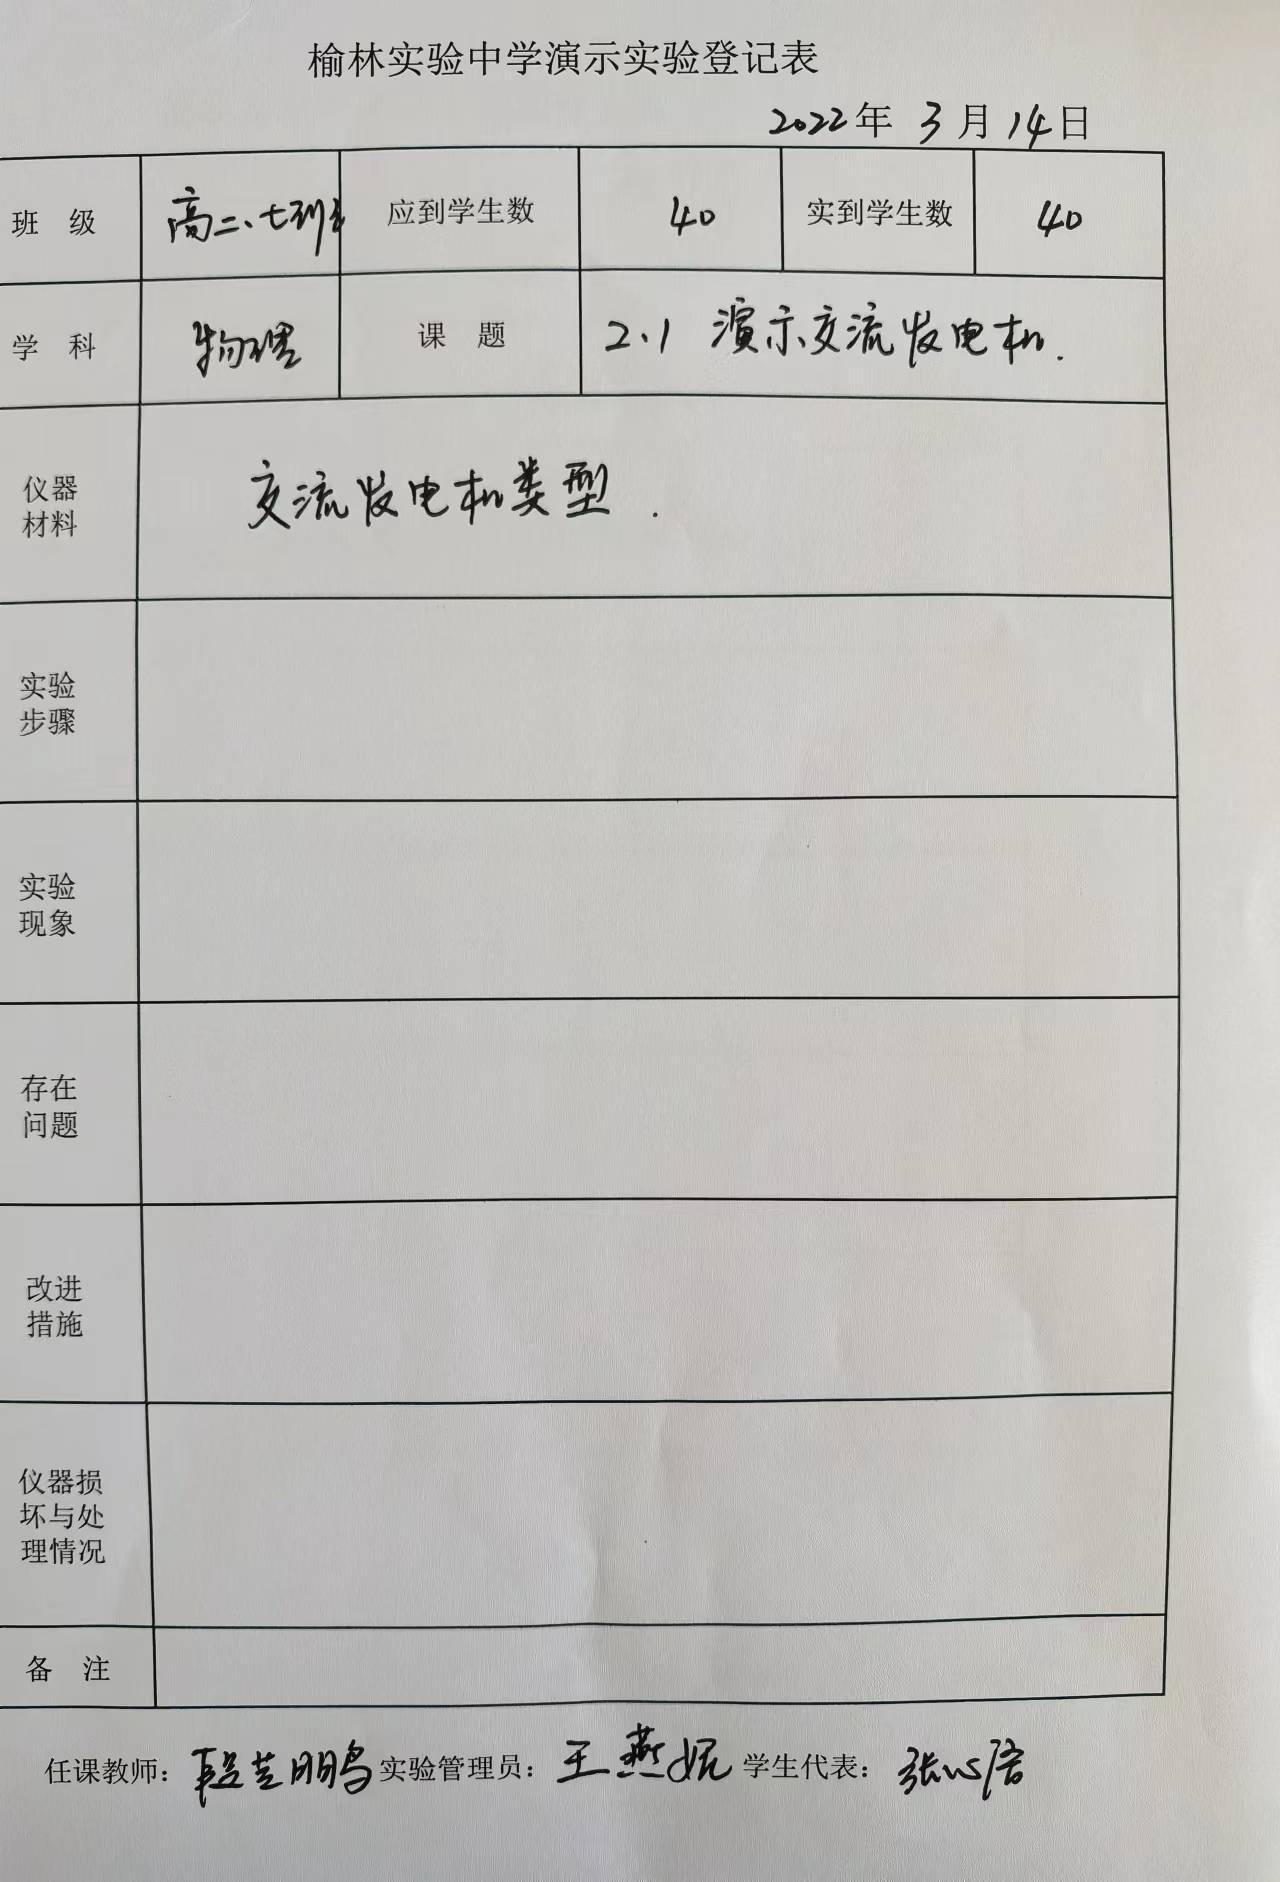 榆林实验中学演示实验登记表
2022年 3月14日
班 级 高二、七班 应到学生数 40 实到学生数 40
学 科 物理 课 题 2.1 演示交流发电机.
仪器
材料
交流发电机类型.
实验
步骤
实验
现象
存在
问题
改进
措施
仪器损
坏与处
理情况
备 注
任课教师: 实验管理员: 王燕妮 学生代表: 张